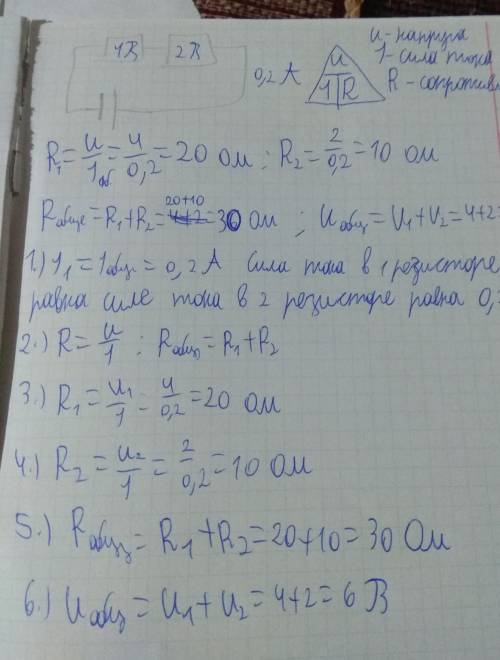 4В 2В
0,2 А
U
I R
U - напруга
I - сила тока
R - сопротив
R₁ = U/Iоб. = 4/0,2 = 20 Ом ; R₂ = 2/0,2 = 10 Ом
20+10
Rобще = R₁ + R₂ = 4+2 = 30 Ом ; Uобщ = U₁ + U₂ = 4+2 =
1.) I₁ = Iобщ = 0,2 А сила тока в 1 резисторе
равна силе тока в 2 резисторе равна 0,
2.) R = U/I ; Rобщ = R₁ + R₂
3.) R₁ = U₁/I = 4/0,2 = 20 Ом
4.) R₂ = U₂/I = 2/0,2 = 10 Ом
5.) Rобщ = R₁ + R₂ = 20 + 10 = 30 Ом
6.) Uобщ = U₁ + U₂ = 4 + 2 = 6 В